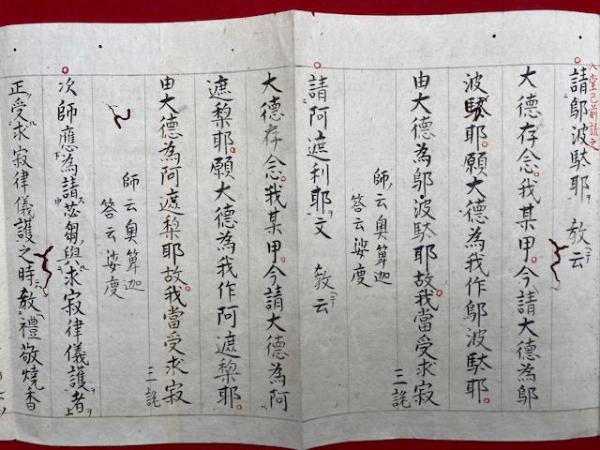 入堂已前請之
請鄔波駄耶 教云
大德存念。我某甲。今請大德為鄔
波駄耶。願大德為我作鄔波駄耶。
由大德為鄔波駄耶故。我當受求寂 三說
師云奧箄迦
答云娑度
請阿遮利耶文 教云
大德存念。我某甲。今請大德為阿
遮梨耶。願大德為我作阿遮梨耶。
由大德為阿遮梨耶故。我當受求寂 三說
師云奧箄迦
答云娑度
次師應為請苾芻與求寂律儀護者
正受求寂律儀護之時教禮敬燒香